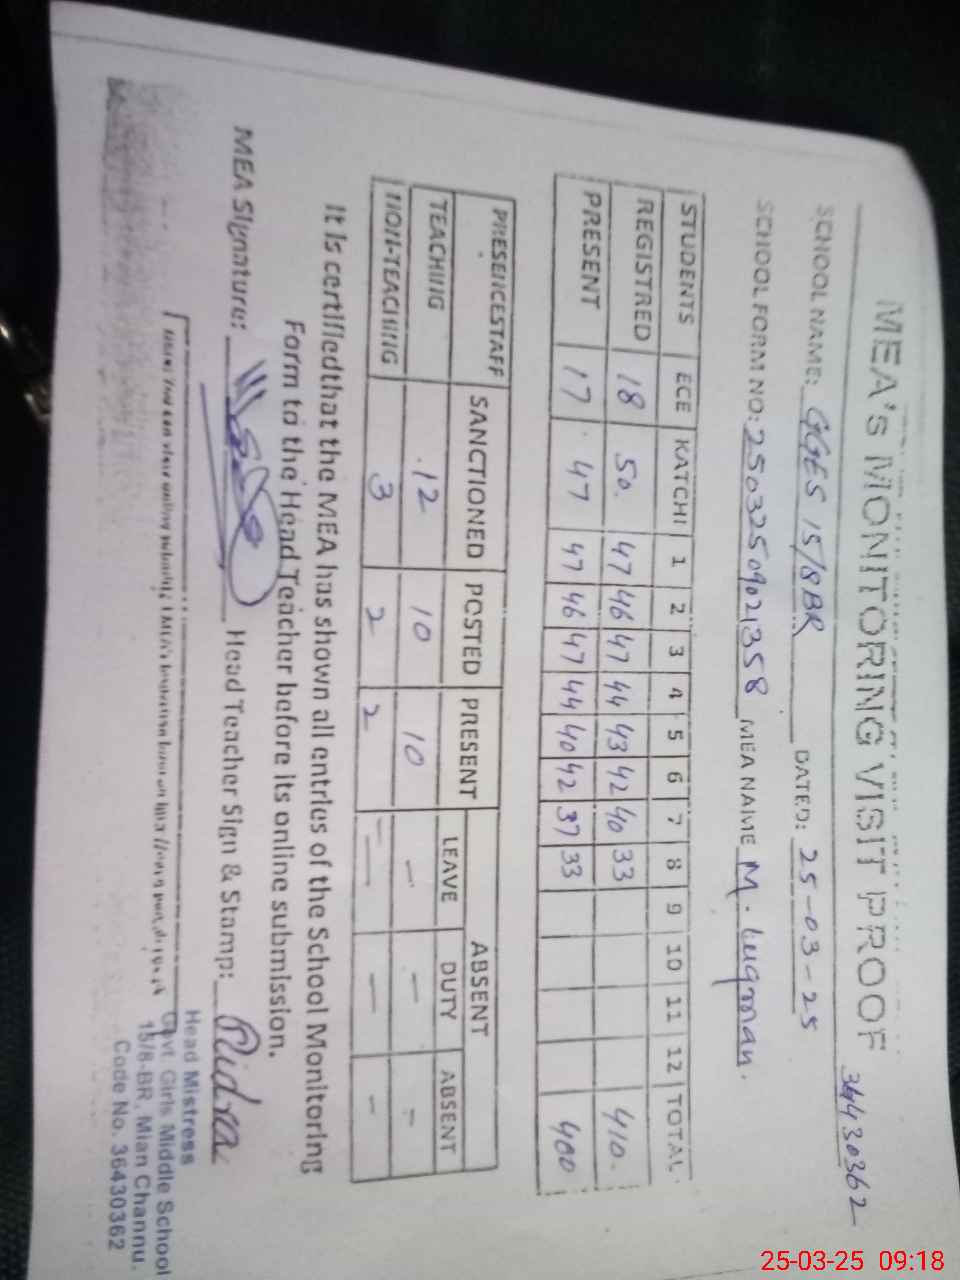 MEA's MONITORING VISIT PROOF
36430362
SCHOOL NAME: GGES 15/8BR DATED: 25-03-25
SCHOOL FORM NO: 25032509021358 MEA NAME M. Luqman.
STUDENTS ECE KATCHI 1 2 3 4 5 6 7 8 9 10 11 12 TOTAL
REGISTRED 18 50 47 46 47 44 43 42 40 33 410
PRESENT 17 47 47 46 47 44 40 42 37 33 400
PRESENCESTAFF SANCTIONED POSTED PRESENT ABSENT
LEAVE DUTY ABSENT
TEACHING 12 10 10 - - -
NON-TEACHING 3 2 2 - - -
It is certifiedthat the MEA has shown all entries of the School Monitoring
Form to the Head Teacher before its online submission.
MEA Signature: Head Teacher Sign & Stamp: Ridra
Head Mistress
Govt. Girls Middle School
15/8-BR, Mian Channu.
Code No. 36430362
25-03-25 09:18